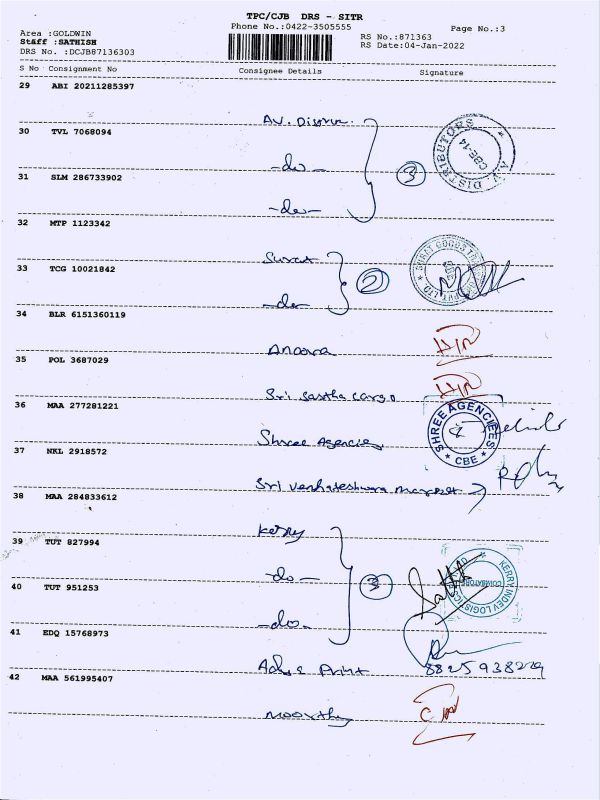 TPC/CJB DRS - SITR
Phone No.:0422-3505555
Page No.:3
Area :GOLDWIN
Staff :SATHISH
DRS No. :DCJB87136303
RS No.:871363
RS Date:04-Jan-2022
S No Consignment No Consignee Details Signature
29 ABI 20211285397
AV.
A.V. DISTRIBUTORS CBE-14
30 TVL 7068094
-do-
3
31 SLM 286733902
-do-
32 MTP 1123342
Surat
SURAT GOODS PVT. LTD.
33 TCG 10021842
-do-
2
34 BLR 6151360119
35 POL 3687029
Sri Sastha Cargo
36 MAA 277281221
Shree Agencies
SHREE AGENCIEES CBE
37 NKL 2918572
Sri Venkateshwara
38 MAA 284833612
Kerry
39 TUT 827994
-do-
3
KERRY INDEV LOGISTICS COIMBATORE
40 TUT 951253
-do-
41 EDQ 15768973
Print
8825938229
42 MAA 561995407
Moorthy